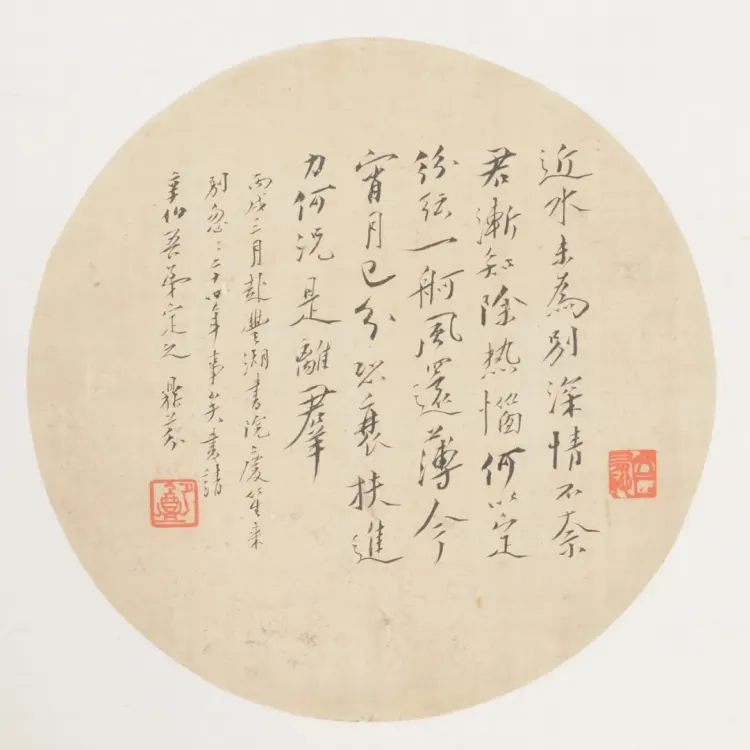 近水未為別深情不奈
君漸知除热惱何以定
紛紜一舸風還薄今
宵月已分恐衰扶進
力何況是離羣
丙戌三月赴豐湖書院慶笙來
別忽〻二十四年事矣書請
辛伯吾弟定之 鼎芬